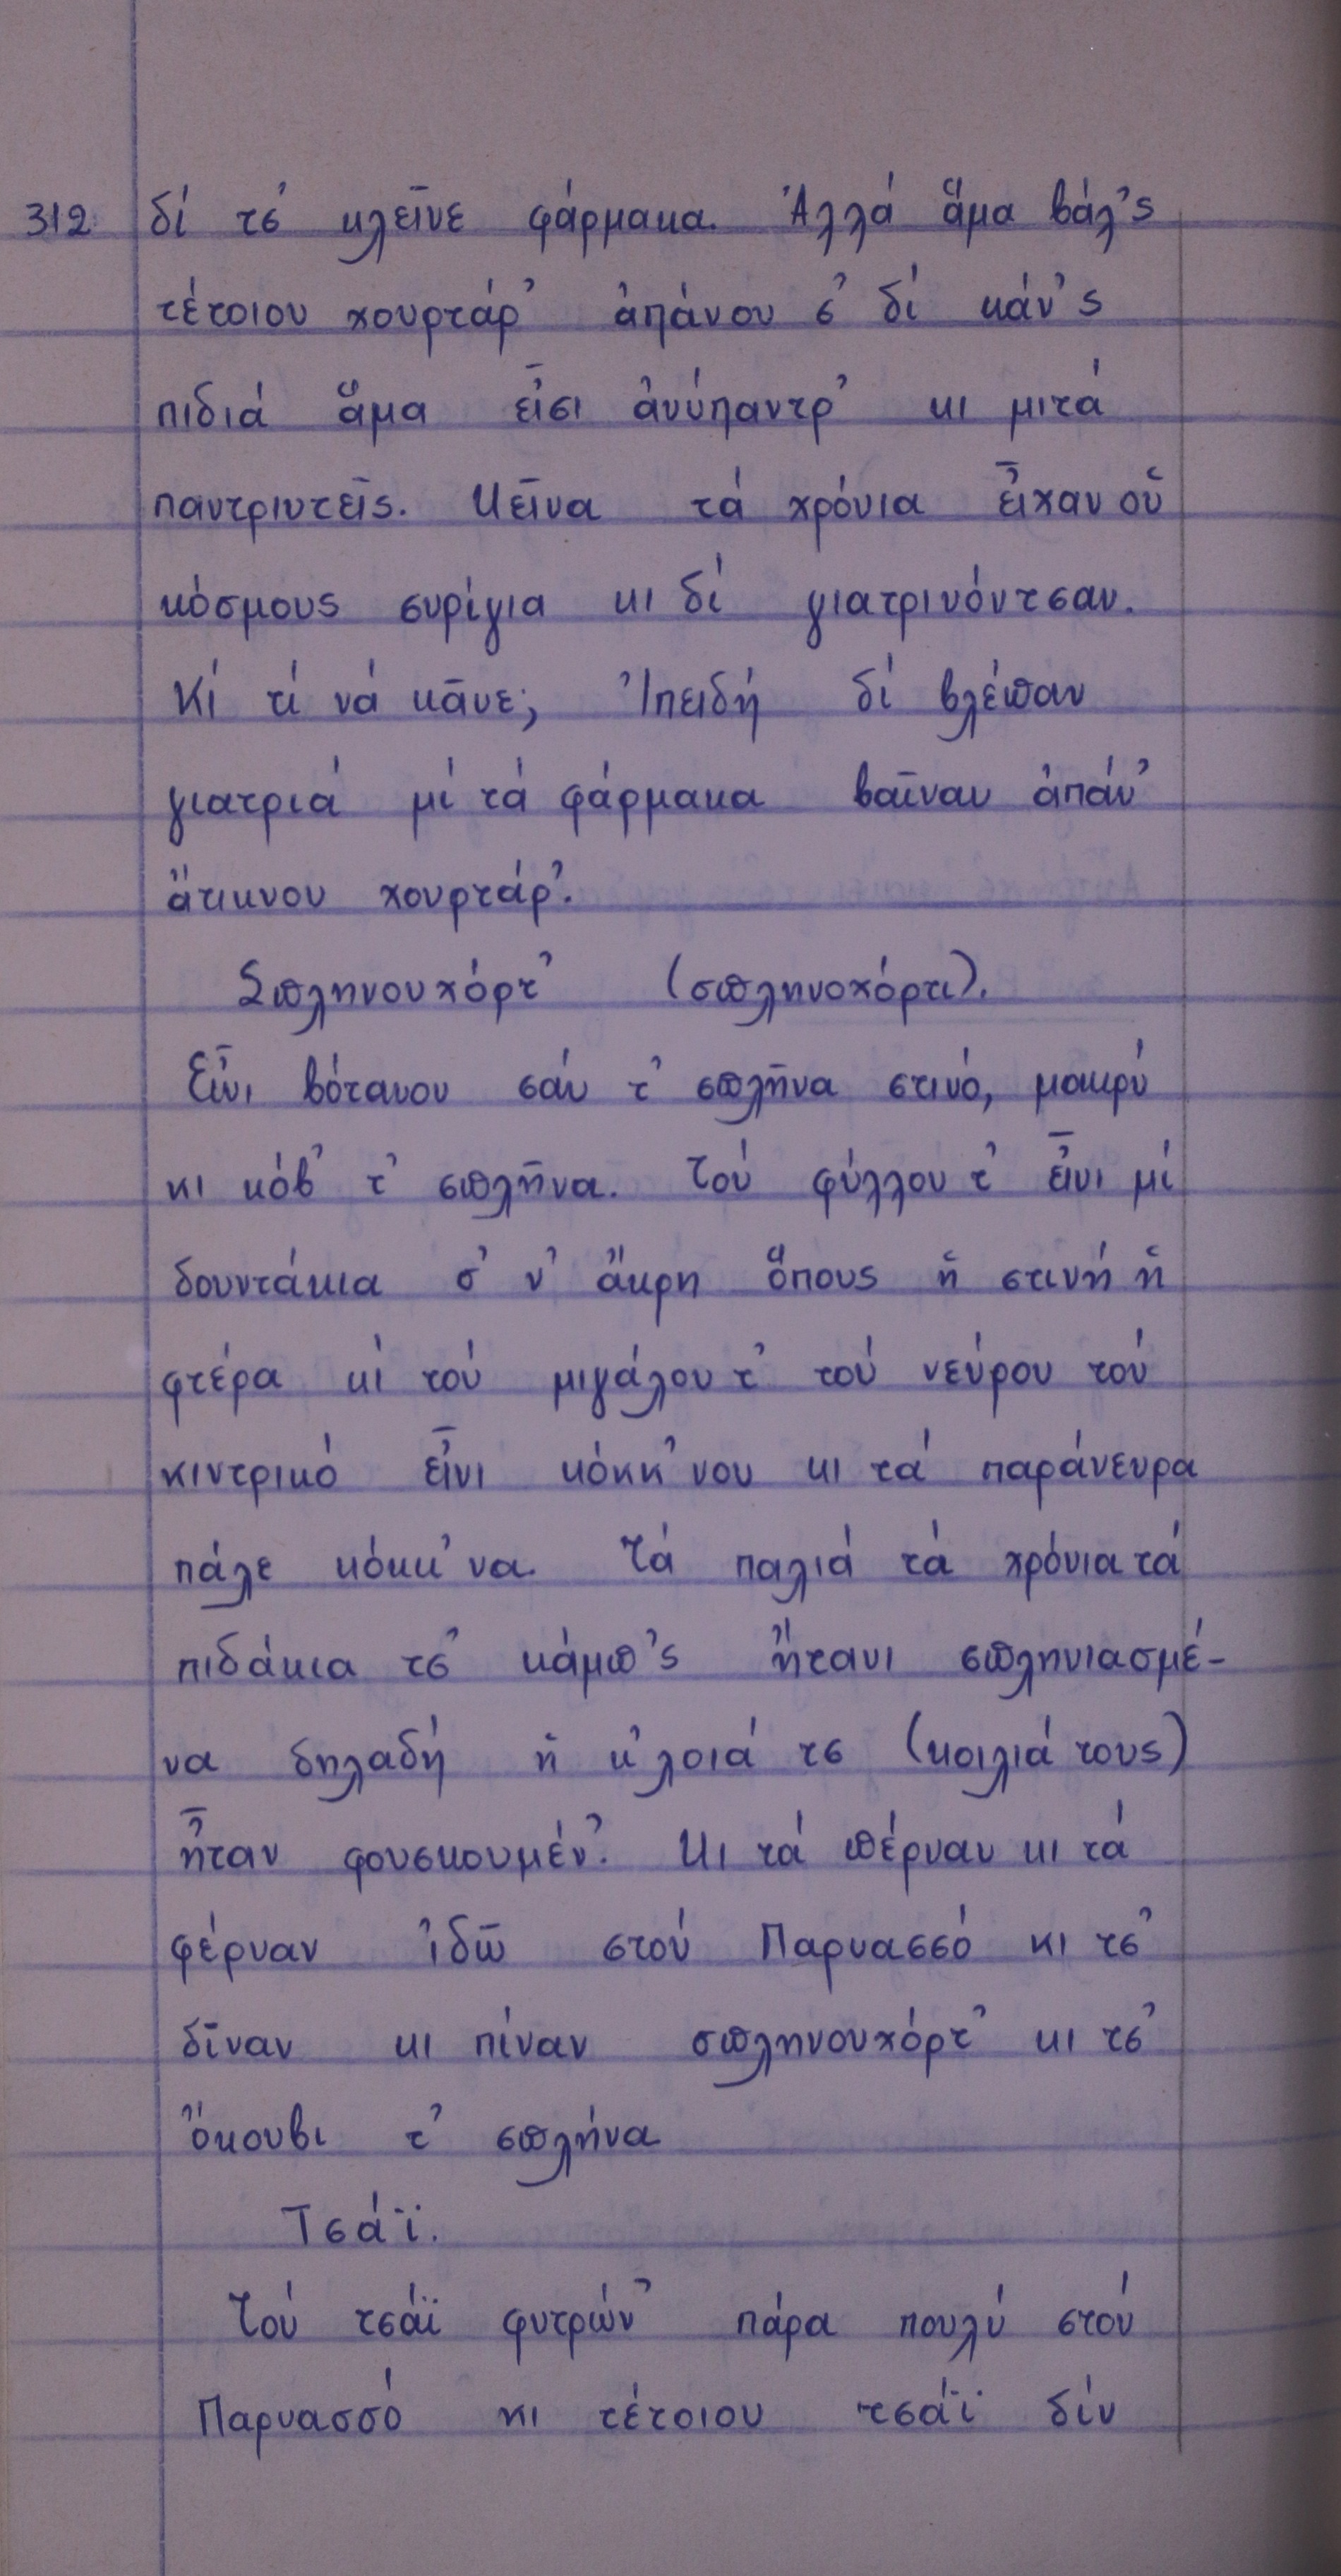 312 δέ τσ' κλεῖνε φάρμακα. Ἀλλά ἅμα βάλ'ς
τέτοιου χουρτάρ' ἀπάνου σ' δέ κάν'ς
πιδιά ἅμα εἶσι ἀνύπαντρ' κι μιτά
παντριυτεῖς. Κεῖνα τά χρόνια εἶχαν οὑ
κόσμους συρίγια κι δέ γιατρινόντσαν.
Κί τί νά κᾶνε; Ἰπειδή δέ βλέπαν
γιατριά μέ τά φάρμακα βαῖναν ἀπάν'
ἄτικνου χουρτάρ'.
Σπληνουχόρτ' (σπληνοχόρτι).
Εἶνι βότανου σάν τ' σπλῆνα στινό, μακρύ
κι κόβ' τ' σπλῆνα. Τού φύλλου τ' εἶνι μέ
δουντάκια σ' ν' ἄκρη ὅπους ἡ στινή ἡ
φτέρα κί τού μιγάλου τ' τού νεύρου τού
κιντρικό εἶνι κόκκ'νου κι τά παράνευρα
πάλε κόκκ'να. Τά παλιά τά χρόνια τά
πιδάκια τσ' κάμπ'ς ἤτανι σπληνιασμέ-
να δηλαδή ἡ κ'λοιά τσ (κοιλιά τους)
ἦταν φουσκουμέν'. Κι τά πέρναν κι τά
φέρναν ἰδῶ στού Παρνασσό κι τσ'
δῖναν κι πίναν σπληνουχόρτ' κι τσ'
ὄκουβι τ' σπλήνα
Τσάϊ.
Τού τσάϊ φυτρών' πάρα πουλύ στού
Παρνασσό κι τέτοιου τσάϊ δέν